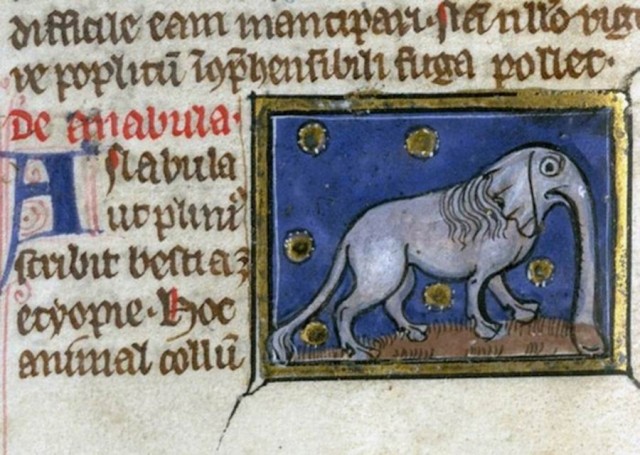 difficile eam mancipari· vig
re poplitū īcōp̄hensibili fuga pollet·
De anabula·
Anabula
ut plini᾿
scribit bestia ē
etyopie· Hoc
animal collū